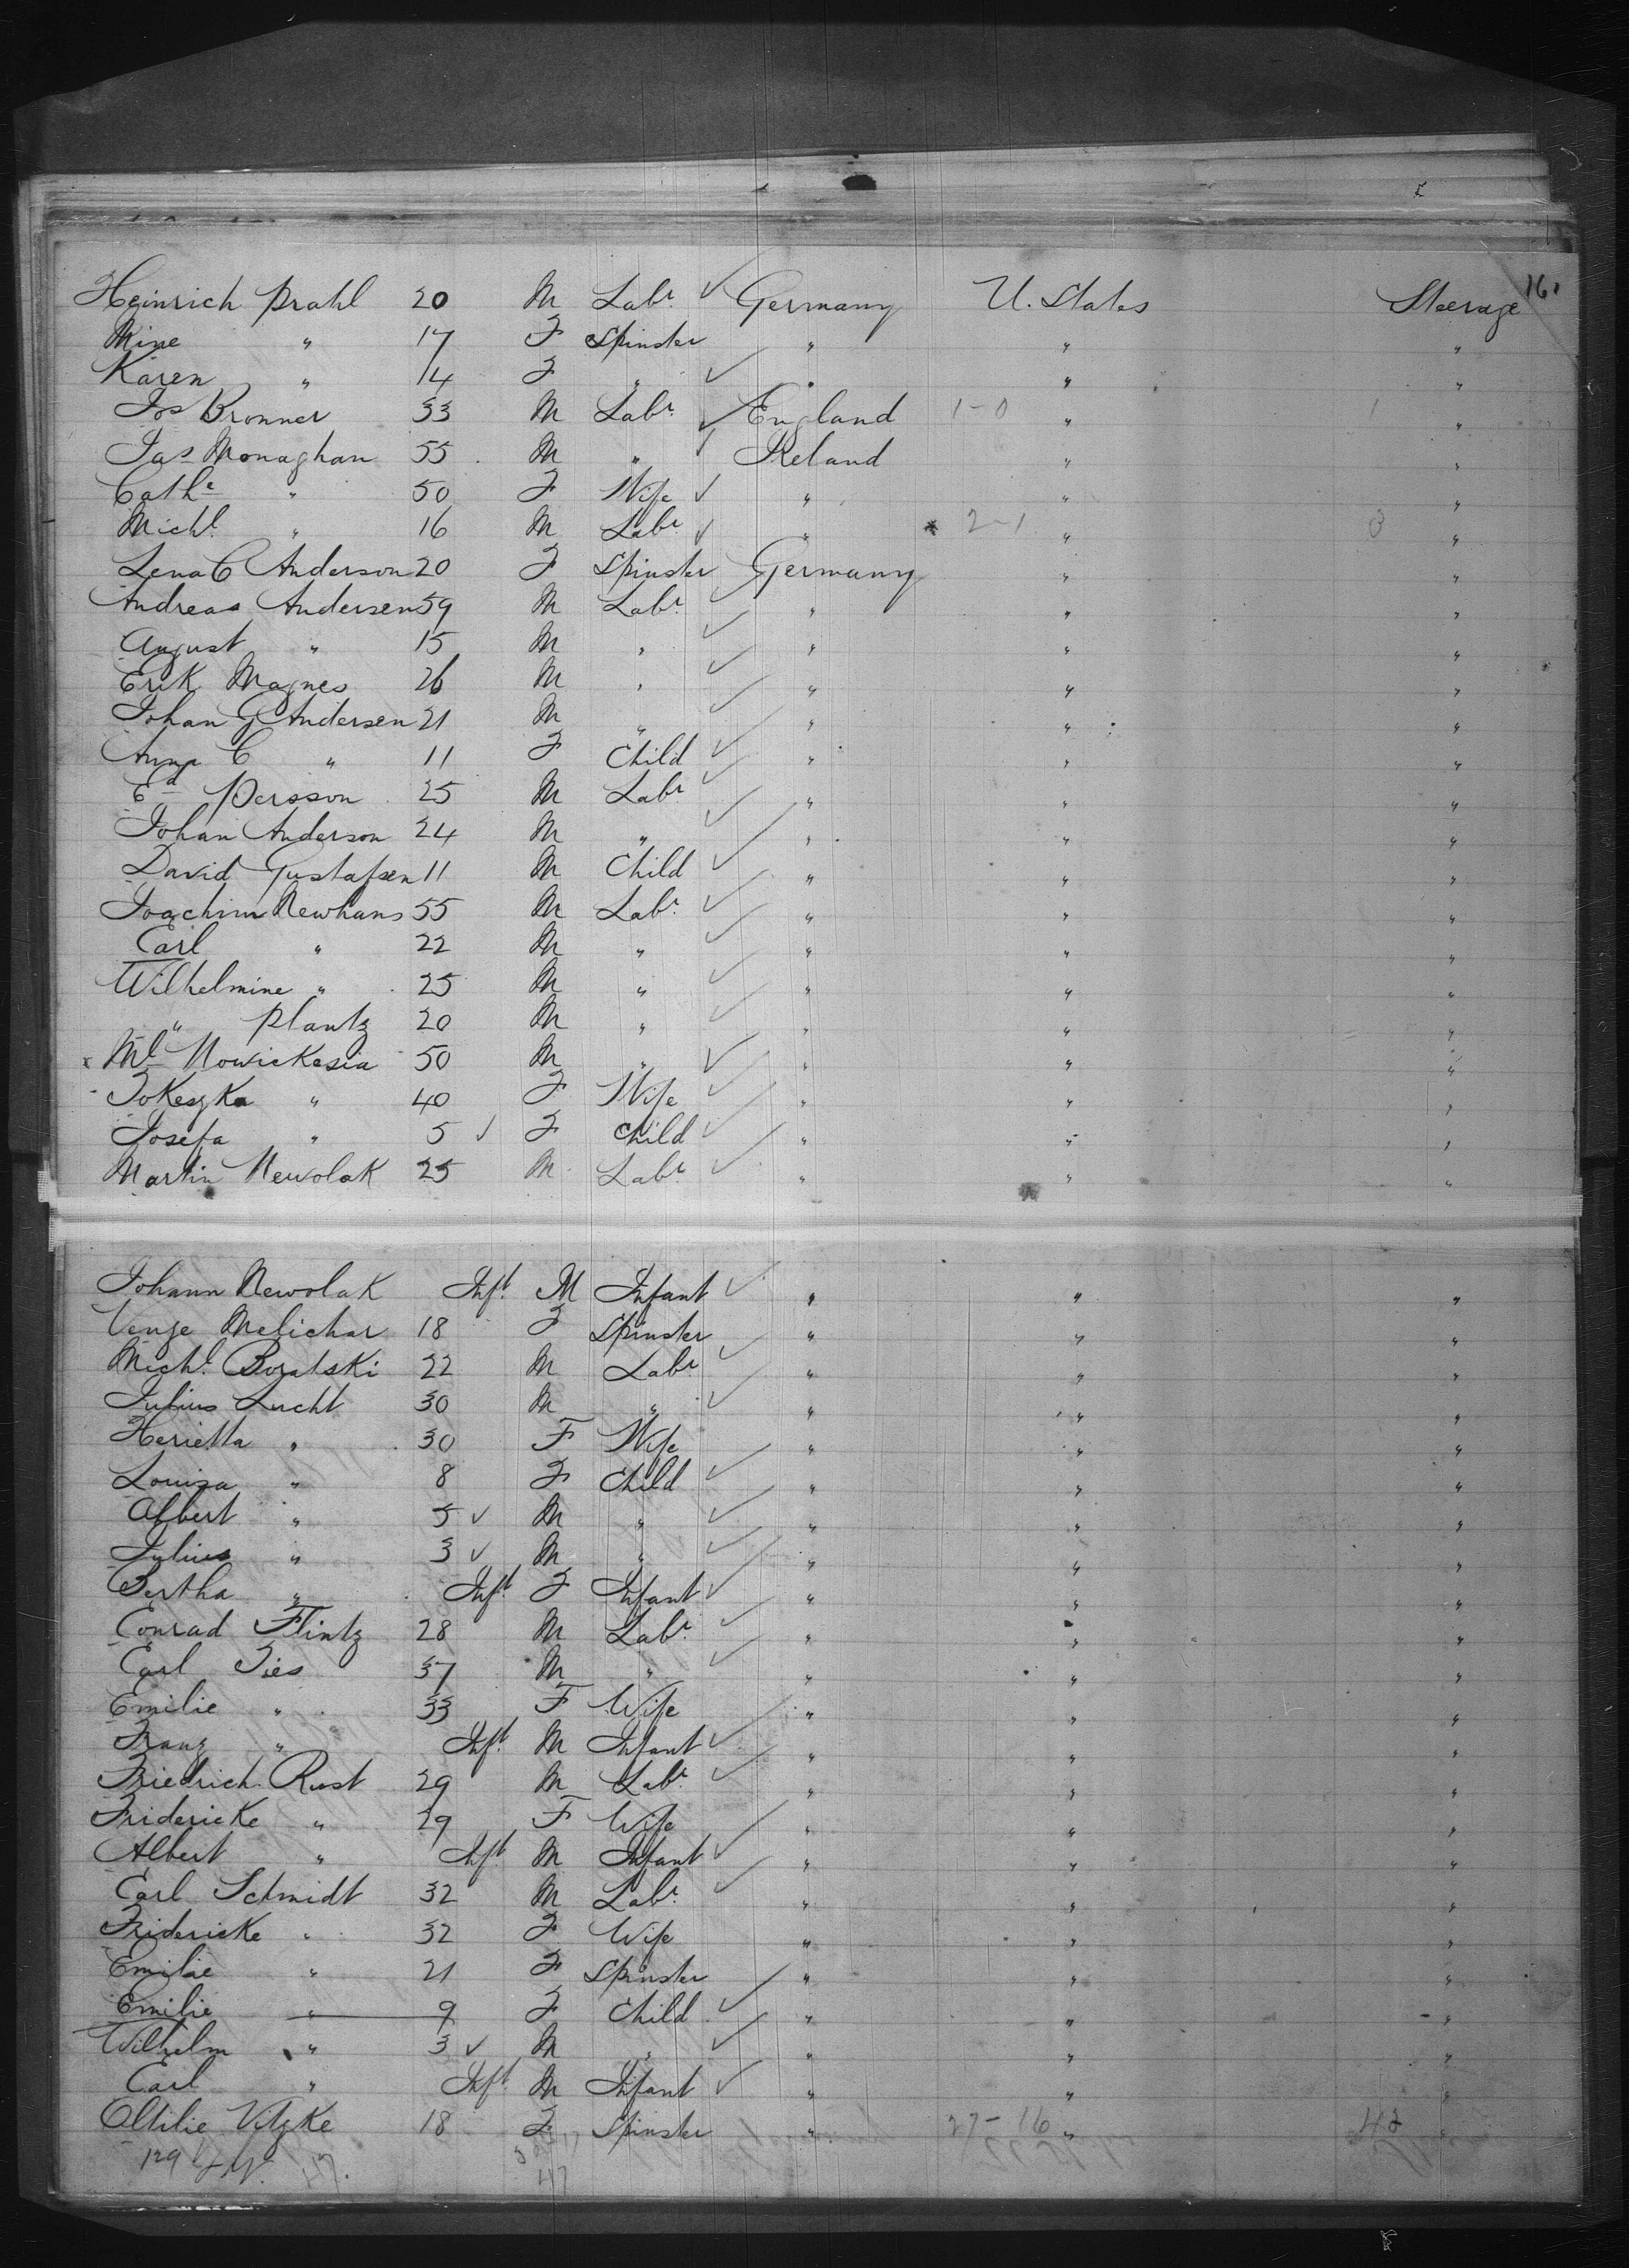 161
Heinrich Prahl 20 M Labr ✓ Germany U. States Steerage
Mine " 17 F Spinster " " "
Karen " 14 F " ✓ " " "
Jos Bronner 33 M Labr ✓ England 1-0 " 1 "
Jas Monaghan 55 M " ✓ Ireland " "
Cathe " 50 F Wife ✓ " " "
Michl " 16 M Labr ✓ " 2-1 " 3 "
Lena C Anderson 20 F Spinster Germany " "
Andreas Andersen 59 M Labr ✓ " " "
August " 15 M " ✓ " " "
Erik Magnes 26 M " ✓ " " "
Johan G Andersen 21 M " ✓ " " "
Anna C " 11 F Child ✓ " " "
Ed Persson 25 M Labr ✓ " " "
Johan Anderson 24 M " ✓ " " "
David Gustafsen 11 M Child ✓ " " "
Joachim Newhans 55 M Labr ✓ " " "
Earl " 22 M " ✓ " " "
Wilhelmine " 25 M " ✓ " " "
" Plantz 20 M " ✓ " " "
x Ml Nowickesia 50 M " ✓ " " "
Tokeszka " 40 F Wife ✓ " " "
Josefa " 5 ✓ F Child ✓ " " "
Martin Newolak 25 M Labr ✓ " " "
Johann Newolak Inft M Infant ✓ " " "
Venze Melichar 18 F Spinster " " "
Michl Boratski 22 M Labr ✓ " " "
Julius Lucht 30 M " ✓ " " "
Herietta " 30 F Wife " " "
Louisa " 8 F Child ✓ " " "
Albert " 5 ✓ M " ✓ " " "
Julius " 3 ✓ M " ✓ " " "
Bertha " Inft F Infant ✓ " " "
Conrad Flintz 28 M Labr ✓ " " "
Earl Ties 37 M " ✓ " " "
Emilie " 33 F Wife " " "
Franz " Inft M Infant ✓ " " "
Friedrich Rust 29 M Labr ✓ " " "
Fridericke " 29 F Wife " " "
Albert " Inft M Infant ✓ " " "
Earl Schmidt 32 M Labr ✓ " " "
Fridericke " 32 F Wife " " "
Emilie " 21 F Spinster " " "
Emilie " 9 F Child ✓ " " "
Wilhelm " 3 ✓ M " ✓ " " "
Earl " Inft M Infant ✓ " " "
Ottilie Vitzke 18 F Spinster " 27-16 " 42 "
129 47.
47